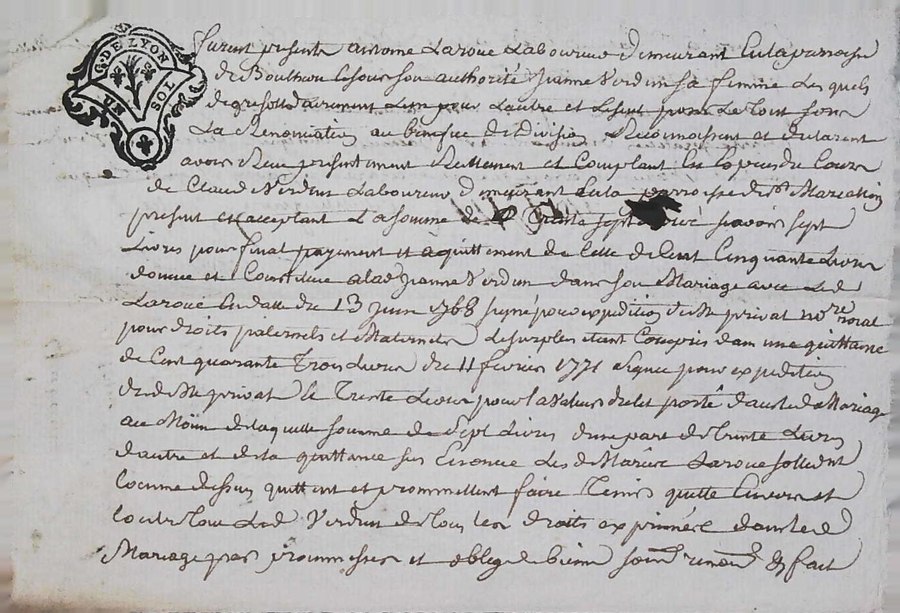 G. DE LYON
UN SOL
furent presents antoine Laroue Laboureur demeurant en la parroisse
de Boulheur et sous son authorité Jeanne Verdun sa femme Lesquels
de gre sollidairement L'un pour L'autre et Le seul pour Le Tout sous
La Renonciation au benefice de Division Reconnoissent et declarent
avoir Receu presentement Reellement et Comptant en espece du Cours
de Claude Verdun Laboureur demeurant en la parroisse de st Marcellin
present et acceptant La somme de Trente sept Livres scavoir sept
Livres pour final payement et acquittement de Celle de Cent Cinquante Livres
donnee et Constituee a lad Jeanne Verdun dans son Mariage avec Led
Laroue en datte du 13 Juin 1768 signé pour expedition de Me privat nore royal
pour droits paternels et Maternels Le surplus etant Compris dans une quittance
de Cent quarante Trois Livres du 11 fevrier 1771 signee pour expedition
dud Me privat et Trente Livres pour la valeur du lit porté dans led Mariage
au Moien de laquelle somme de Sept Livres d'une part de Trente Livres
d'autre et de la quittance sus Enoncee Les d Mariés Laroue sollidt
Comme dessus quittent et promettent faire Tenir quitte Envers et
Contre Tous Led Verdun de Tous les droits exprimés dans led
Mariage par promesses et oblige de biens soumis renonce fait